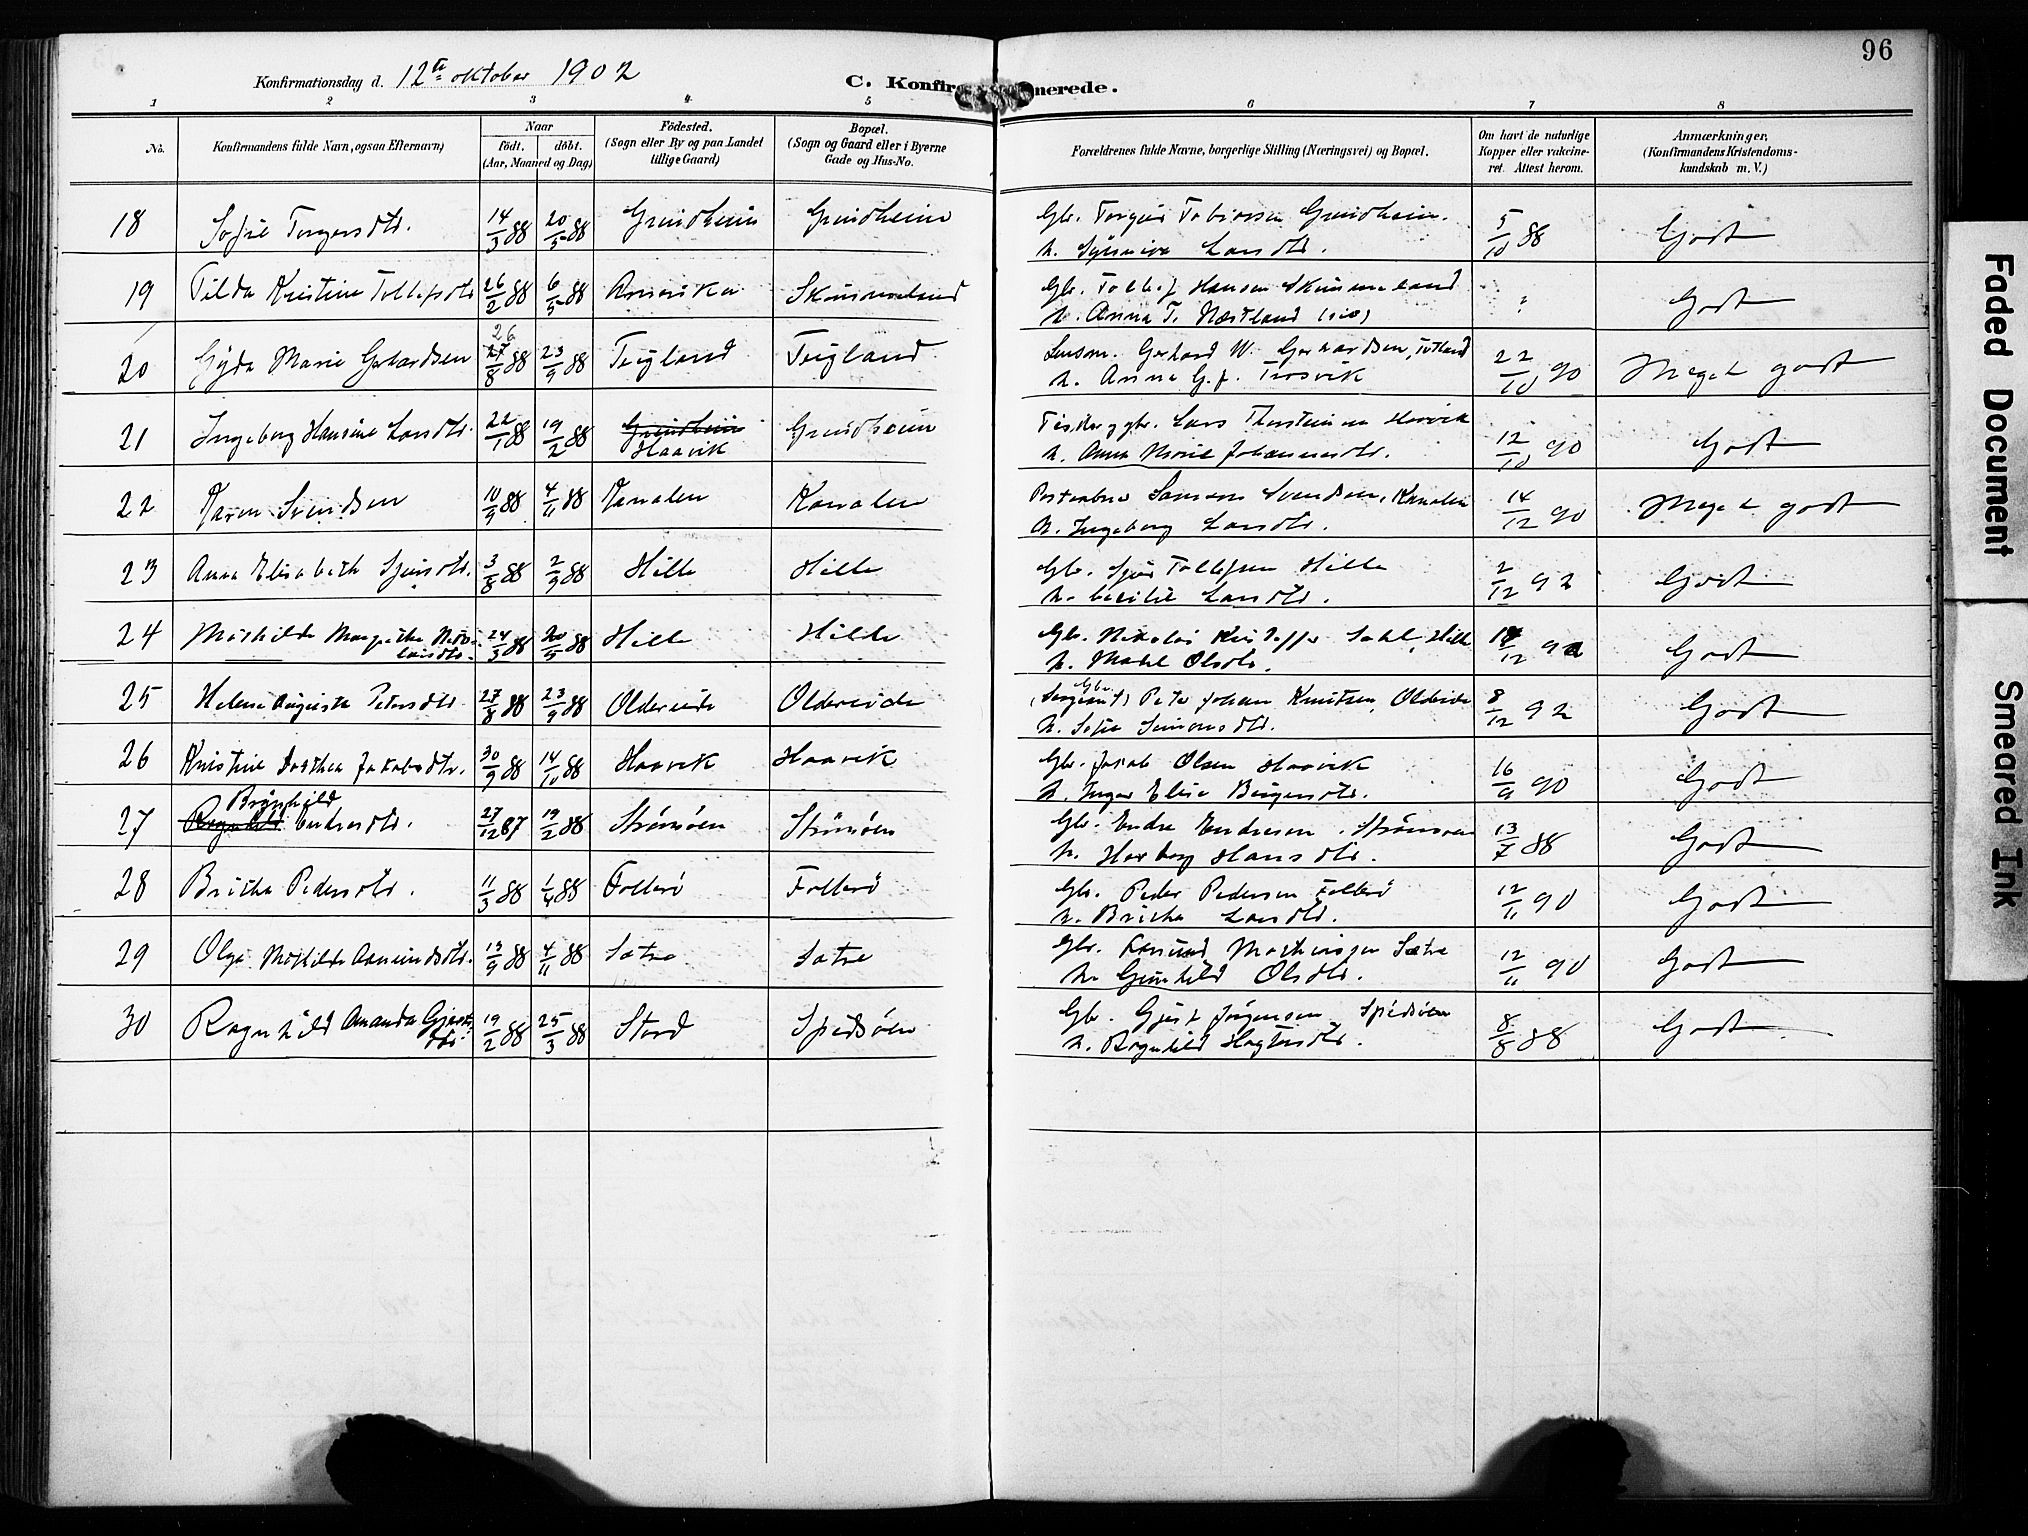 96
Konfirmationsdag d. 12te oktober 1902
C. Konfir nerede.
1 2 3 4 5 6 7 8
No. Konfirmandens fulde Navn, ogsaa Efternavn) Naar födt. döbt. (Aar, Maaned og Dag) Födested. (Sogn eller By og paa Landet tillige Gaard) Bopæl. (Sogn og Gaard eller i Byerne Gade og Hus-No. Forældrenes fulde Navne, borgerlige Stilling (Næringsvei) og Bopæl. Om havt de naturlige Kopper eller vakcineret. Attest herom. Anmærkninger, (Konfirmandens Kristendomskundskab m. V.)
18 Sofie Torgersdtr. 14/3 88 20/5 88 Grindheim Grindheim Gbr. Torger Tobiassen Grindheim. 5/10 88 Godt
h. Larsdtr.
19 Tilda Kristine Tollefsdtr 26/2 88 6/5 88 Amerika Skimmeland Gbr. Tollef Hansen Skimmeland Godt
h. Anna T. Næstland
20 Gyda Marie Gerhardsen 26 27/8 88 23/9 88 Teigland Teigland Lensm. Gerhard W. Gerhardsen, 22/10 90 Meget godt
h. Anna G. f. Trosvik
21 Ingeborg Hansine Larsdtr. 22/1 88 19/2 88 Grindheim Haavik Grindheim Fisker, gbr. Lars Thorsteinsen Haavik 12/10 90 Godt
h. Anna Marie Johannesdtr.
22 Karen Svendsen 10/9 88 4/11 88 Kanalen Kanalen Samson Svendsen, Kanalen 14/12 90 Meget godt
h. Ingeborg Larsdtr.
23 Anna Elisabeth Sjursdtr. 3/8 88 2/9 88 Hille Hille Gbr. Sjur Tollefsen Hille 2/12 92 Godt
h. Cecilie Larsdtr.
24 Mathilde Margrethe Nikolaisdtr. 24/3 88 20/5 88 Hille Hille Gbr. Nikolai Kristoffer Hille /12 92 Godt
h. Mabel Olsdtr.
25 Helene Augusta Petersdtr. 27/8 88 23/9 88 Oldereide Oldereide Gbr. (Sergeant) Peter Johan Knutsen, Oldereide 8/12 92 Godt
h. Sofie Simonsdtr.
26 Kristine Dorthea Jakobsdtr. 30/9 88 14/10 88 Haavik Haavik Gbr. Jakob Olsen Haavik 16/9 90 Godt
h. Inger Elise Børgersdtr.
27 Brynhild Ragnhild Endresdtr. 27/12 87 19/2 88 Strömöen Strömöen Gbr. Endre Endresen, Strömöen 13/7 88 Godt
h. Herborg Hansdtr.
28 Britha Pedersdtr. 11/3 88 1/4 88 Folderö Folderö Gbr. Peder Pedersen Folderö 12/11 90 Godt
h. Britha Larsdtr.
29 Olga Mathilde Aamundsdtr. 13/9 88 4/11 88 Sætre Sætre Gbr. Aamund Mathiassen Sætre 12/11 90 Godt
h. Gunhild Olsdtr.
30 Ragnhild Amanda Gjertsdtr. 19/2 88 25/3 88 Stord Spidsöen Gbr. Gjert Jørgensen Spidsöen 8/8 88 Godt
h. Ragnhild
Faded Document
Smeared Ink